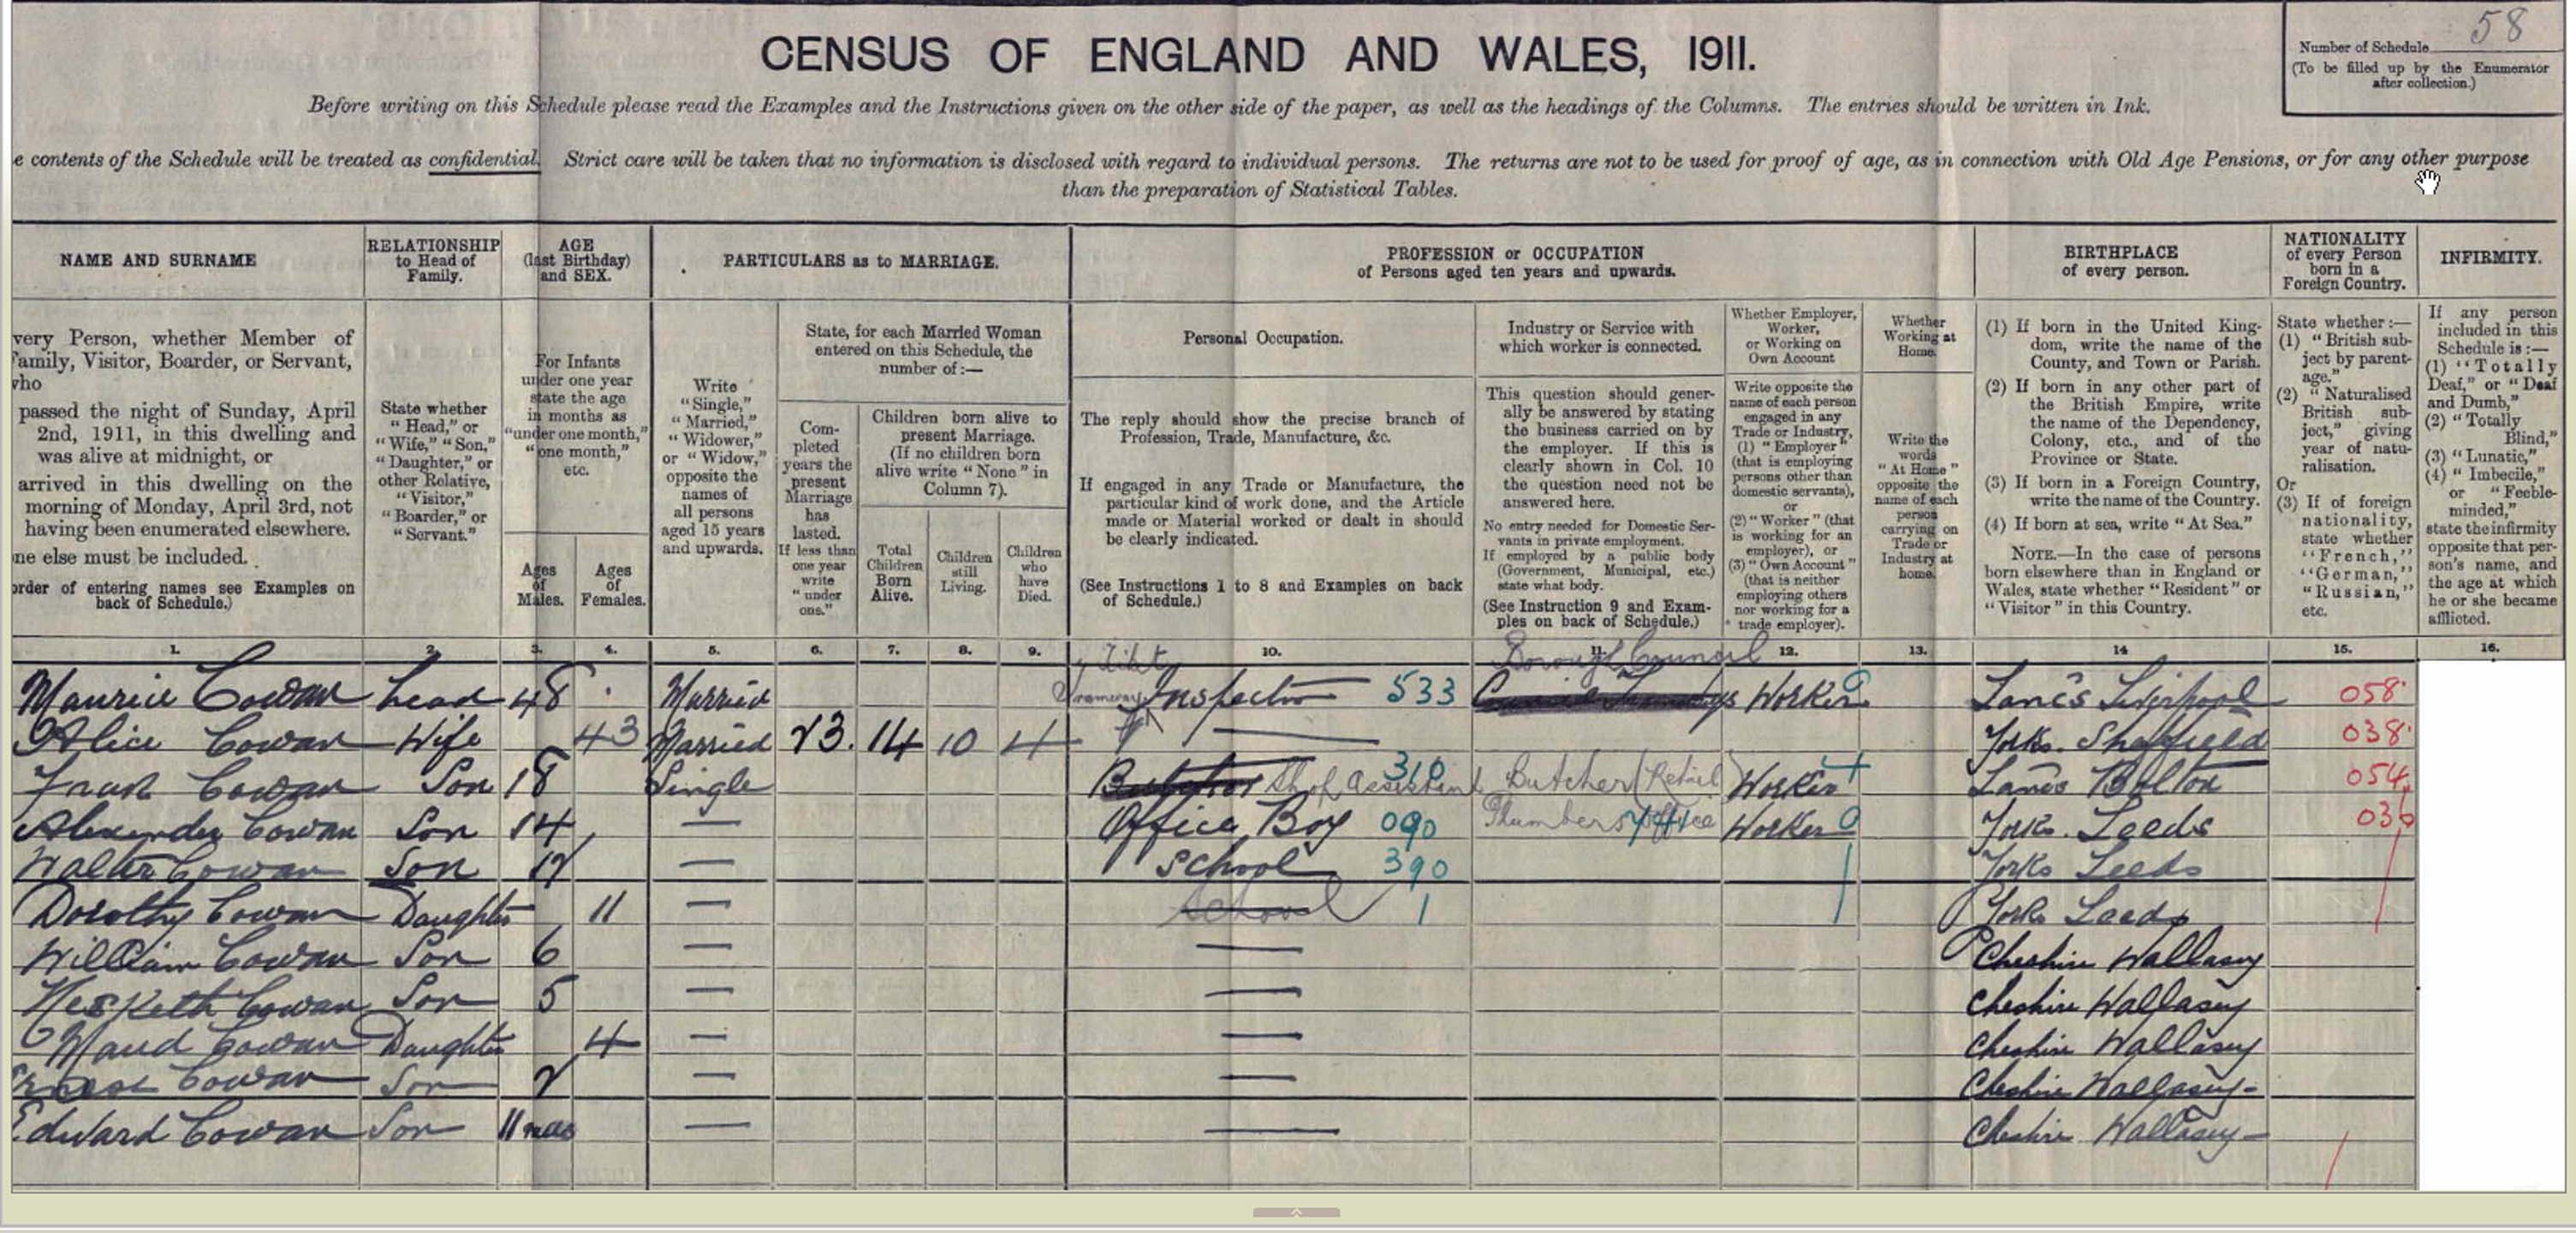 58
CENSUS OF ENGLAND AND WALES, 1911.
Number of Schedule
(To be filled up by the Enumerator
after collection.)
Before writing on this Schedule please read the Examples and the Instructions given on the other side of the paper, as well as the headings of the Columns. The entries should be written in Ink.
e contents of the Schedule will be treated as confidential. Strict care will be taken that no information is disclosed with regard to individual persons. The returns are not to be used for proof of age, as in connection with Old Age Pensions, or for any other purpose
than the preparation of Statistical Tables.
NAME AND SURNAME
RELATIONSHIP
to Head of
Family.
AGE
(last Birthday)
and SEX.
PARTICULARS as to MARRIAGE.
PROFESSION or OCCUPATION
of Persons aged ten years and upwards.
BIRTHPLACE
of every person.
NATIONALITY
of every Person
born in a
Foreign Country.
INFIRMITY.
very Person, whether Member of
Family, Visitor, Boarder, or Servant,
who
passed the night of Sunday, April
2nd, 1911, in this dwelling and
was alive at midnight, or
arrived in this dwelling on the
morning of Monday, April 3rd, not
having been enumerated elsewhere.
ne else must be included.
order of entering names see Examples on
back of Schedule.)
State whether
"Head," or
"Wife," "Son,"
"Daughter," or
other Relative,
"Visitor,"
"Boarder," or
"Servant."
For Infants
under one year
state the age
in months as
"under one month,"
"one month,"
etc.
Ages
of
Males.
Ages
of
Females.
Write
"Single,"
"Married,"
"Widower,"
or "Widow,"
opposite the
names of
all persons
aged 15 years
and upwards.
State, for each Married Woman
entered on this Schedule, the
number of:—
Com-
pleted
years the
present
Marriage
has
lasted.
If less than
one year
write
"under
one."
Children born alive to
present Marriage.
(If no children born
alive write "None" in
Column 7).
Total
Children
Born
Alive.
Children
still
Living.
Children
who
have
Died.
Personal Occupation.
The reply should show the precise branch of
Profession, Trade, Manufacture, &c.
If engaged in any Trade or Manufacture, the
particular kind of work done, and the Article
made or Material worked or dealt in should
be clearly indicated.
(See Instructions 1 to 8 and Examples on back
of Schedule.)
Industry or Service with
which worker is connected.
This question should gener-
ally be answered by stating
the business carried on by
the employer. If this is
clearly shown in Col. 10
the question need not be
answered here.
No entry needed for Domestic Ser-
vants in private employment.
If employed by a public body
(Government, Municipal, etc.)
state what body.
(See Instruction 9 and Exam-
ples on back of Schedule.)
Whether Employer,
Worker,
or Working on
Own Account
Write opposite the
name of each person
engaged in any
Trade or Industry,
(1) "Employer"
(that is employing
persons other than
domestic servants),
or
(2) "Worker" (that
is working for an
employer), or
(3) "Own Account"
(that is neither
employing others
nor working for a
trade employer).
Whether
Working at
Home.
Write the
words
"At Home"
opposite the
name of each
person
carrying on
Trade or
Industry at
home.
(1) If born in the United King-
dom, write the name of the
County, and Town or Parish.
(2) If born in any other part of
the British Empire, write
the name of the Dependency,
Colony, etc., and of the
Province or State.
(3) If born in a Foreign Country,
write the name of the Country.
(4) If born at sea, write "At Sea."
NOTE.—In the case of persons
born elsewhere than in England or
Wales, state whether "Resident" or
"Visitor" in this Country.
State whether:—
(1) "British sub-
ject by parent-
age."
(2) "Naturalised
British sub-
ject," giving
year of natu-
ralisation.
Or
(3) If of foreign
nationality,
state whether
"French,"
"German,"
"Russian,"
etc.
If any person
included in this
Schedule is:—
(1) "Totally
Deaf," or "Deaf
and Dumb,"
(2) "Totally
Blind,"
(3) "Lunatic,"
(4) "Imbecile,"
or "Feeble-
minded,"
state the infirmity
opposite that per-
son's name, and
the age at which
he or she became
afflicted.
1. 2. 3. 4. 5. 6. 7. 8. 9. 10. 11. 12. 13. 14 15. 16.
Ticket Borough Council
Maurice Cowan head 48 Married Tramways Inspector 533 Worker Lancs Liverpool 058
Alice Cowan Wife 43 Married 23. 14 10 4 — Yorks. Sheffield 038
Frank Cowan Son 18 Single Shop Assistant 310 Butcher (Retail) Worker Lancs Bolton 054
Alexander Cowan Son 14 — Office Boy 090 Plumbers Office Worker Yorks. Leeds 036
Walter Cowan Son 12 — School 390 Yorks Leeds
Dorothy Cowan Daughter 11 — School 1 Yorks Leeds
William Cowan Son 6 — — Cheshire Wallasey
Hesketh Cowan Son 5 — — Cheshire Wallasey
Maud Cowan Daughter 4 — — Cheshire Wallasey
Ernest Cowan Son 2 — — Cheshire Wallasey
Edward Cowan Son 11 mos — — Cheshire Wallasey